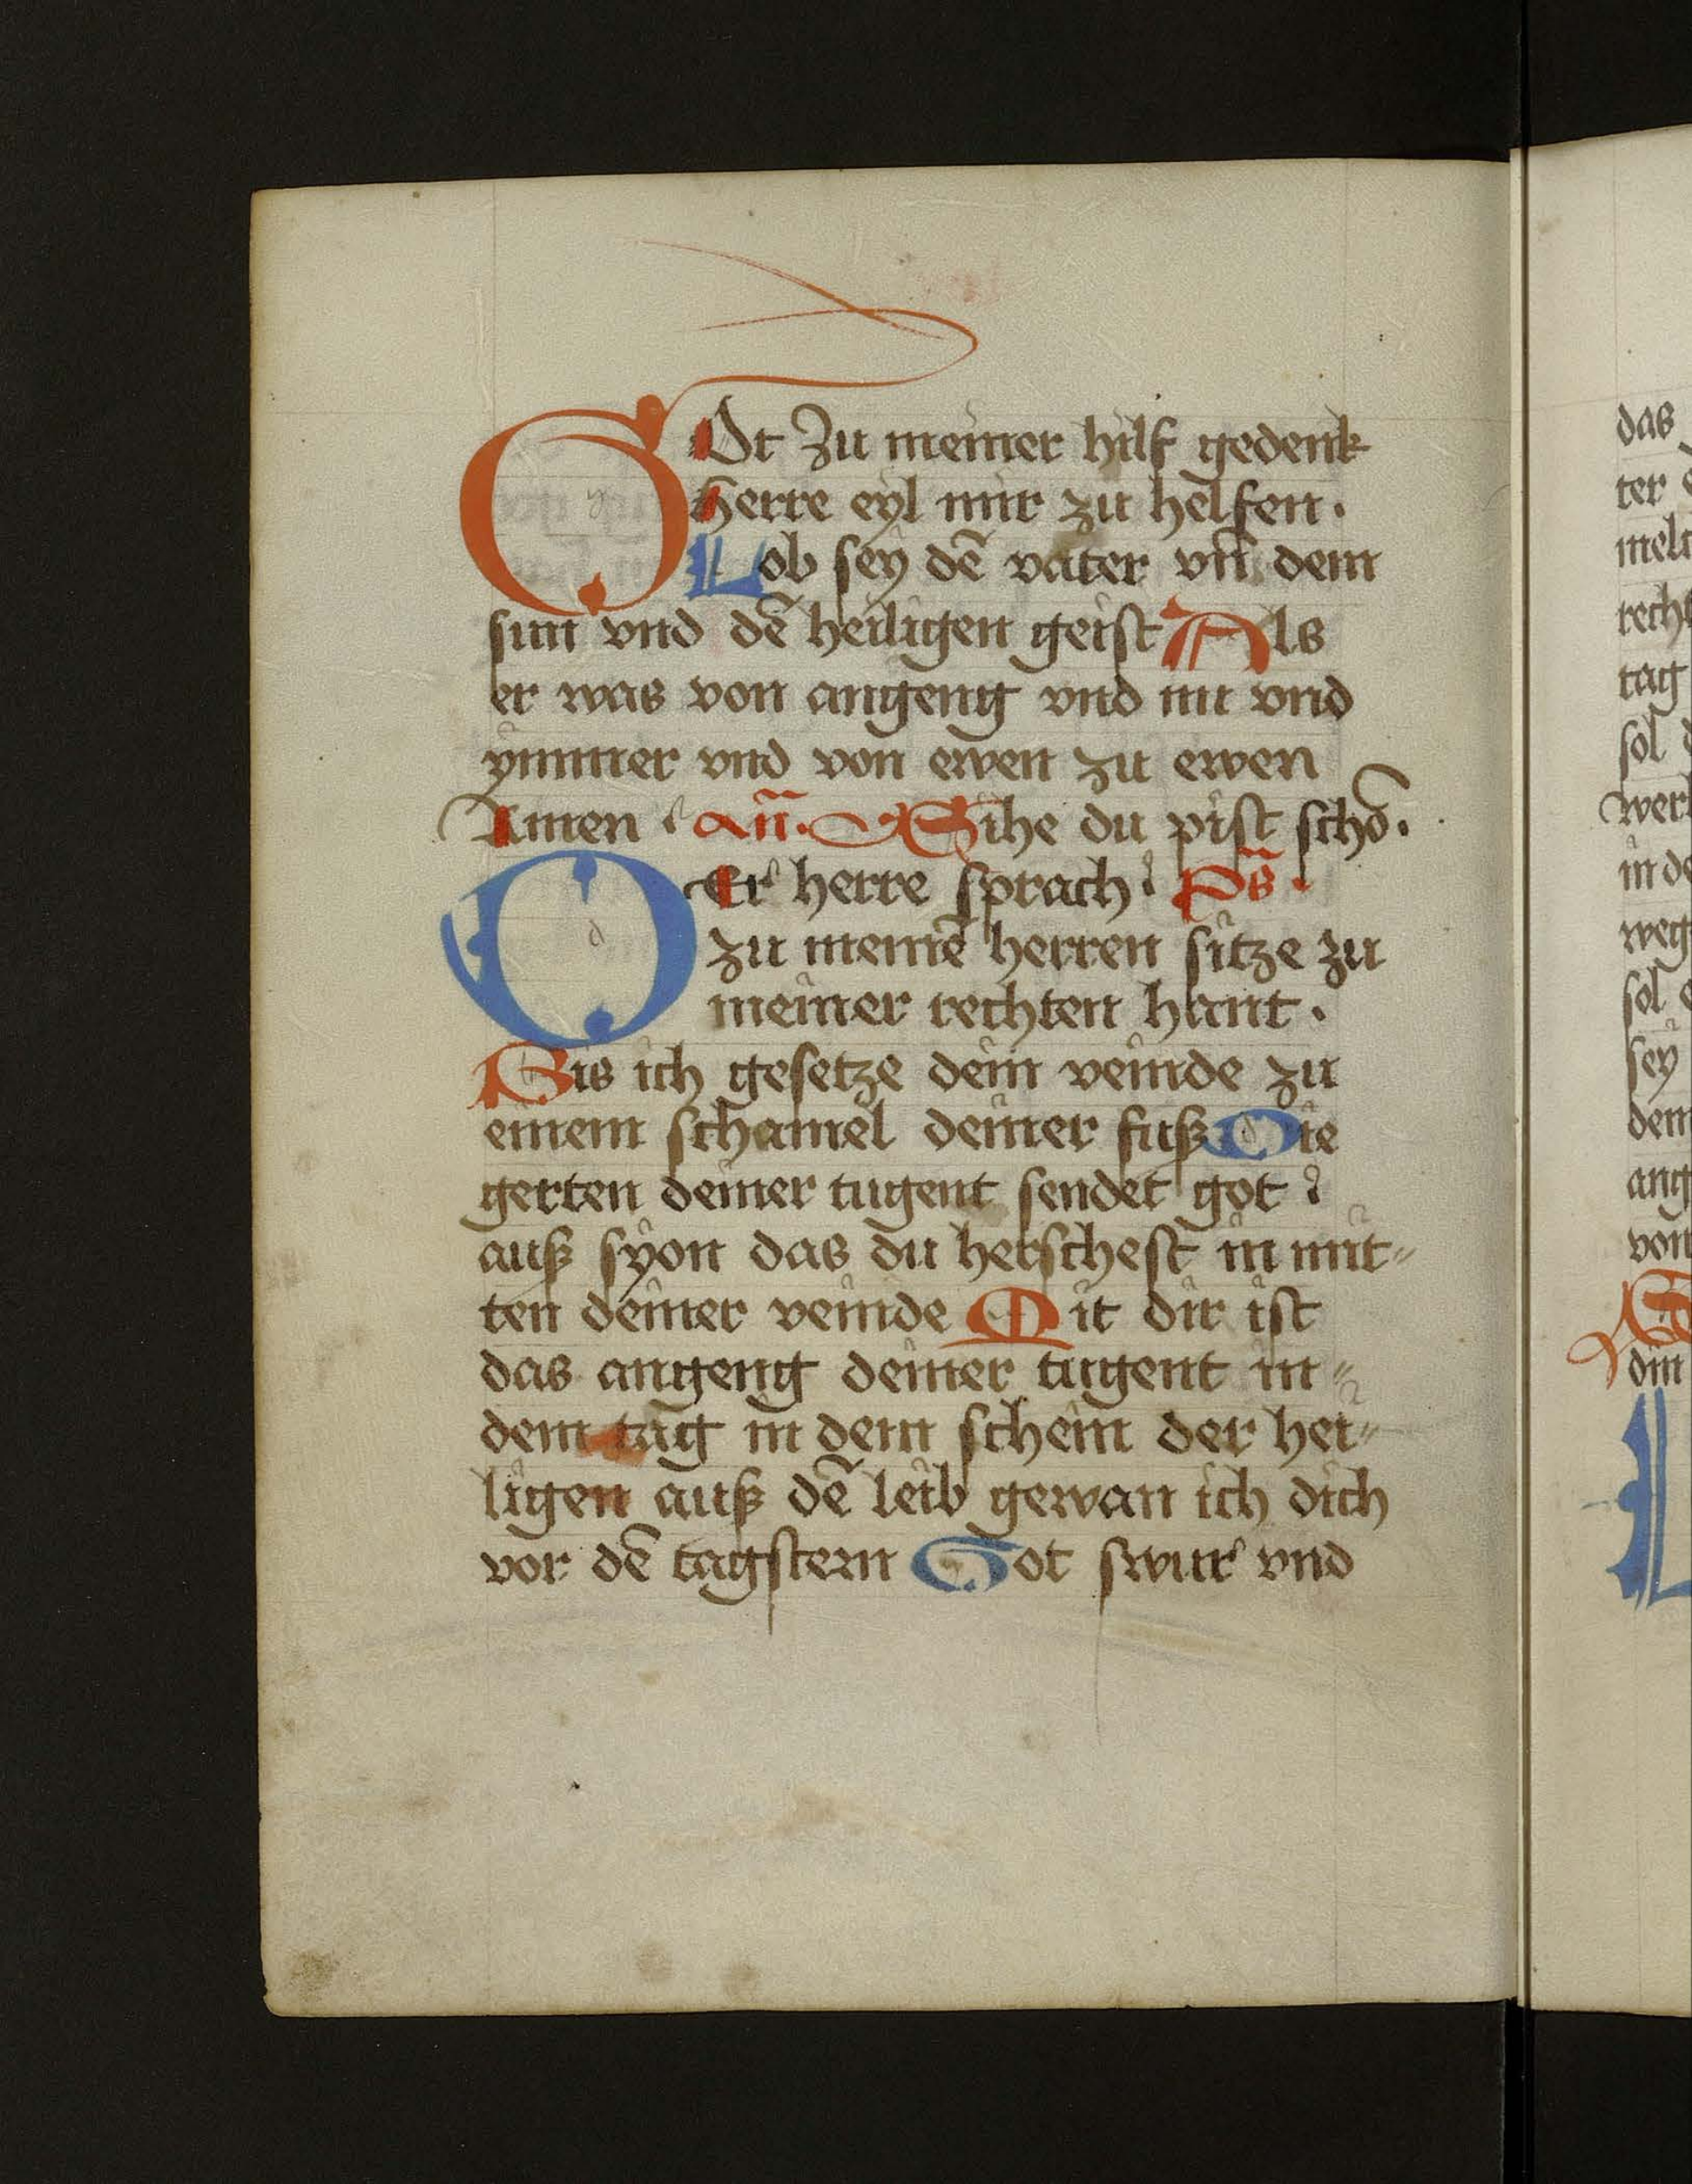 GOt zu meiner hilf gedenk
Herre eyl mir zu helfen.
Lob sey dē vater vn̄ dem
sun vnd dē heiligen geist Als
er was von angeng vnd nu vnd
ymmer vnd von ewen zu ewen
Amen. an̄. Sihe du pist schō.
DEr herre sprach: ps̄.
zu meinē herren sitze zu
meiner rechten hant.
Bis ich gesetze dein veinde zu
einem schamel deiner fuß Die
gerten deiner tugent sendet got:
auß syon das du herschest in mit⸗
ten deiner veinde Mit dir ist
das angeng deiner tugent in⸗
dem tag in dem schein der hei⸗
ligen auß dē leib gewan ich dich
vor dē tagstern Got swur vnd
das
ter
rech
tag
sol
wer
in de
weg
sol
sey
dem
ang
von